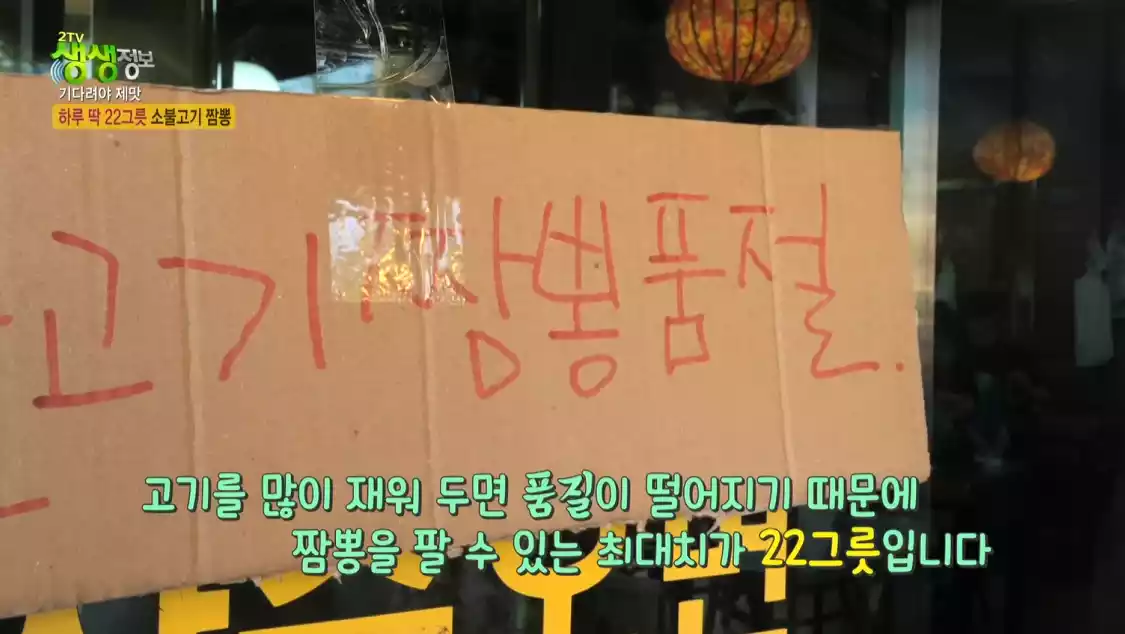 2TV
생생정보
기다려야 제맛
하루 딱 22그릇 소불고기 짬뽕
고기짬뽕품절.
고기를 많이 재워 두면 품질이 떨어지기 때문에
짬뽕을 팔 수 있는 최대치가 22그릇입니다